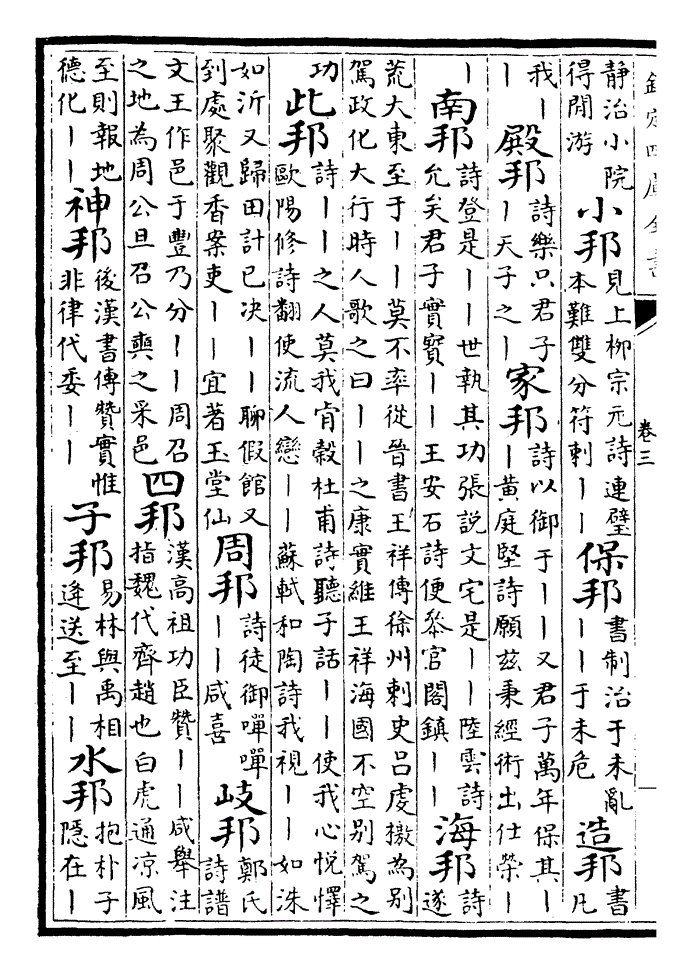 欽定四庫全書 卷三
靜治小院得閒游 小邦 見上柳宗元詩連璧本難雙分符刺丨丨 保邦 書制治于未亂丨丨于未危 造邦 書凡
我丨丨 殿邦 詩樂只君子丨天子之丨 家邦 詩以御于丨丨又君子萬年保其丨丨黄庭堅詩願兹秉經術出仕榮丨
丨 南邦 詩登是丨丨世執其功張説文宅是丨丨陸雲詩允矣君子實寳丨丨王安石詩便叅官閣鎮丨丨 海邦 詩遂
荒大東至于丨丨莫不率從晉書王祥傳徐州刺史呂虔檄為别駕政化大行時人歌之曰丨丨之康實維王祥海國不空别駕之
功 此邦 詩丨丨之人莫我肯穀杜甫詩聽子話丨丨使我心悦懌歐陽修詩翻使流人戀丨丨蘇軾和陶詩我視丨丨如洙
如沂又歸田計已决丨丨聊假館又到處聚觀香案吏丨丨宜著玉堂仙 周邦 詩徒御嘽嘽丨丨咸喜 岐邦 鄭氏詩譜
文王作邑于豐乃分丨丨周召之地為周公旦召公奭之采邑 四邦 漢高祖功臣贊丨丨咸舉注指魏代齊趙也白虎通凉風
至則報地德化丨丨 神邦 後漢書傳贊實惟非律代委丨丨 子邦 易林與禹相逄送至丨丨 水邦 抱朴子隱在丨